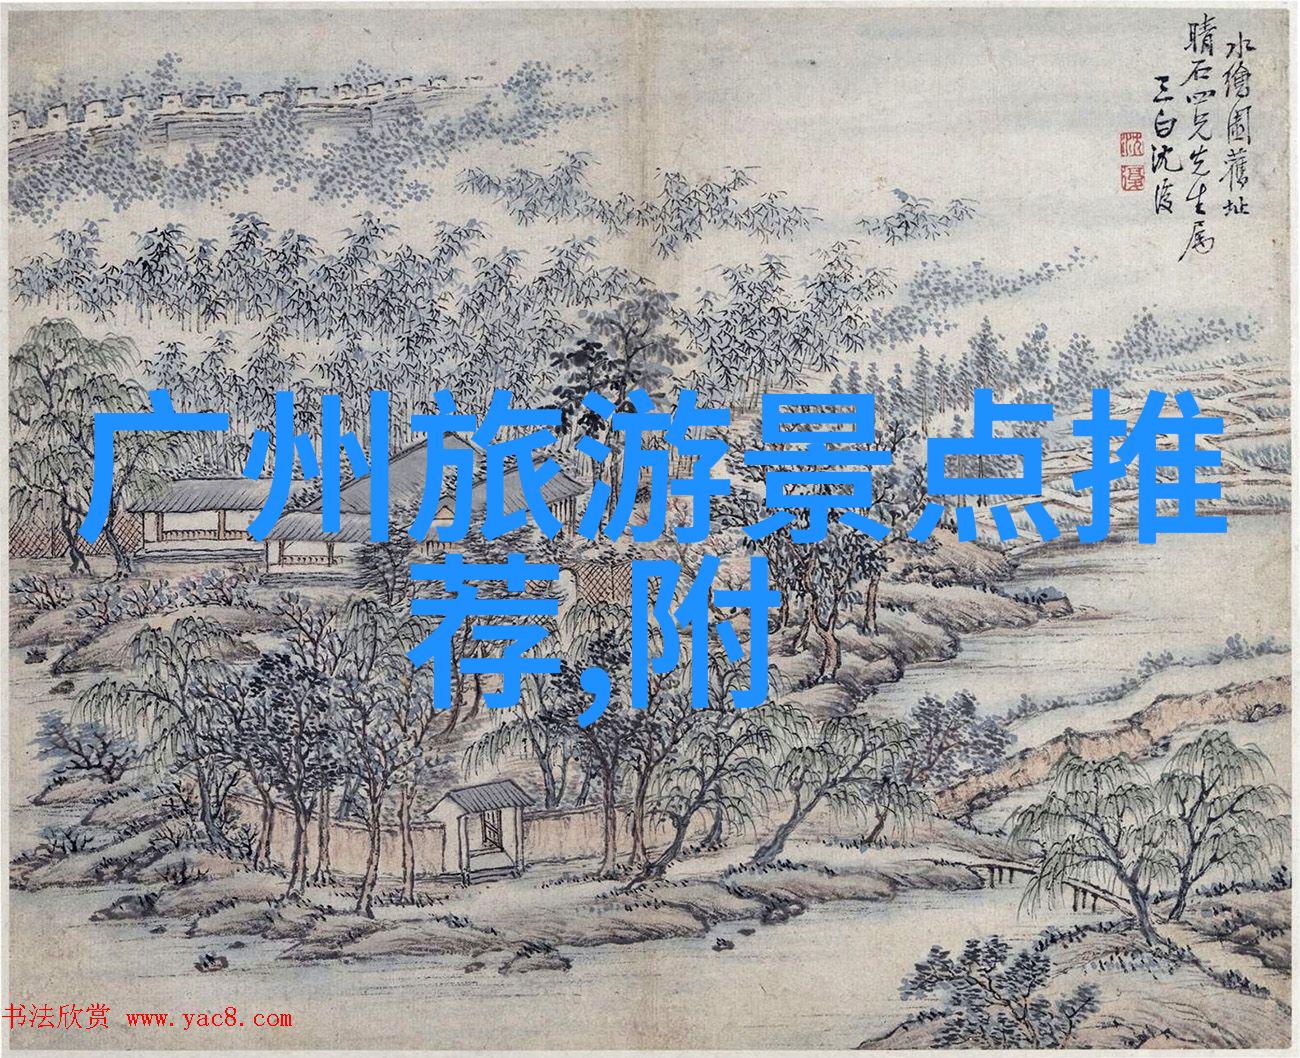 水繪園舊址
晴石四兄先生属
三白沈復
沈
復
广州旅游景点推
荐,附
书法欣赏 www.yac8.com